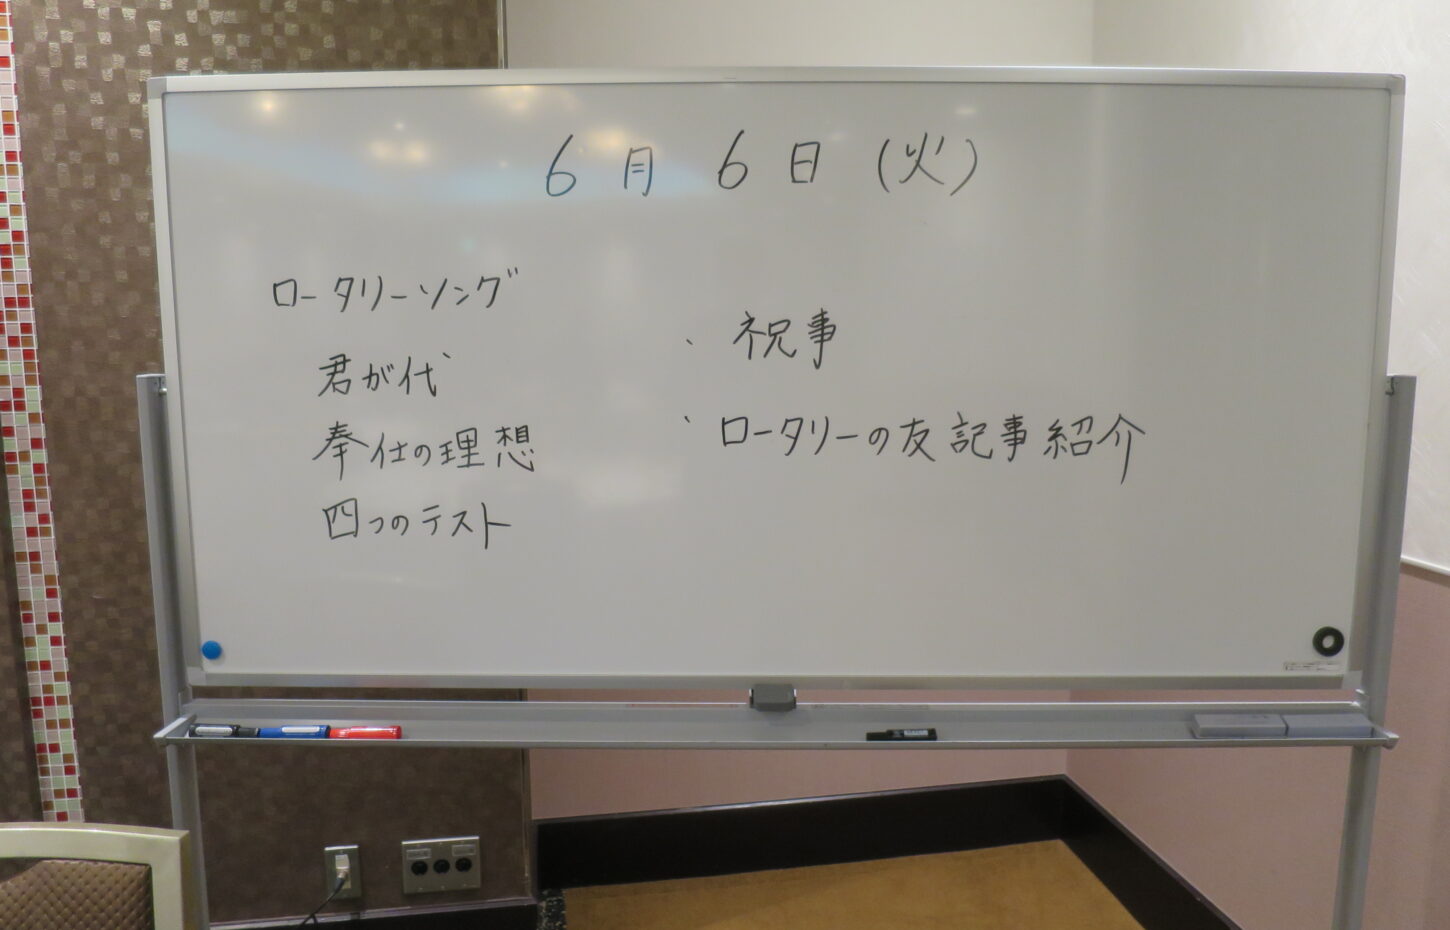 6月6日(火)
ロータリーソング
君が代
奉仕の理想
四つのテスト
・祝事
・ロータリーの友記事紹介